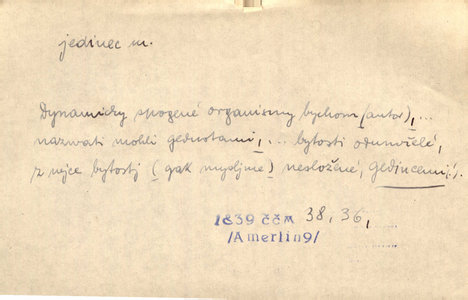 jedinec m.
Dynamicky spogené organismy bychom (autor), ...
nazwati mohli gednotami, ... bytosti oduwřelé,
z nýce bytostj (gak mysljme) nesložené, gedincemi.
1839 ččm 38, 36,
/Amerling/